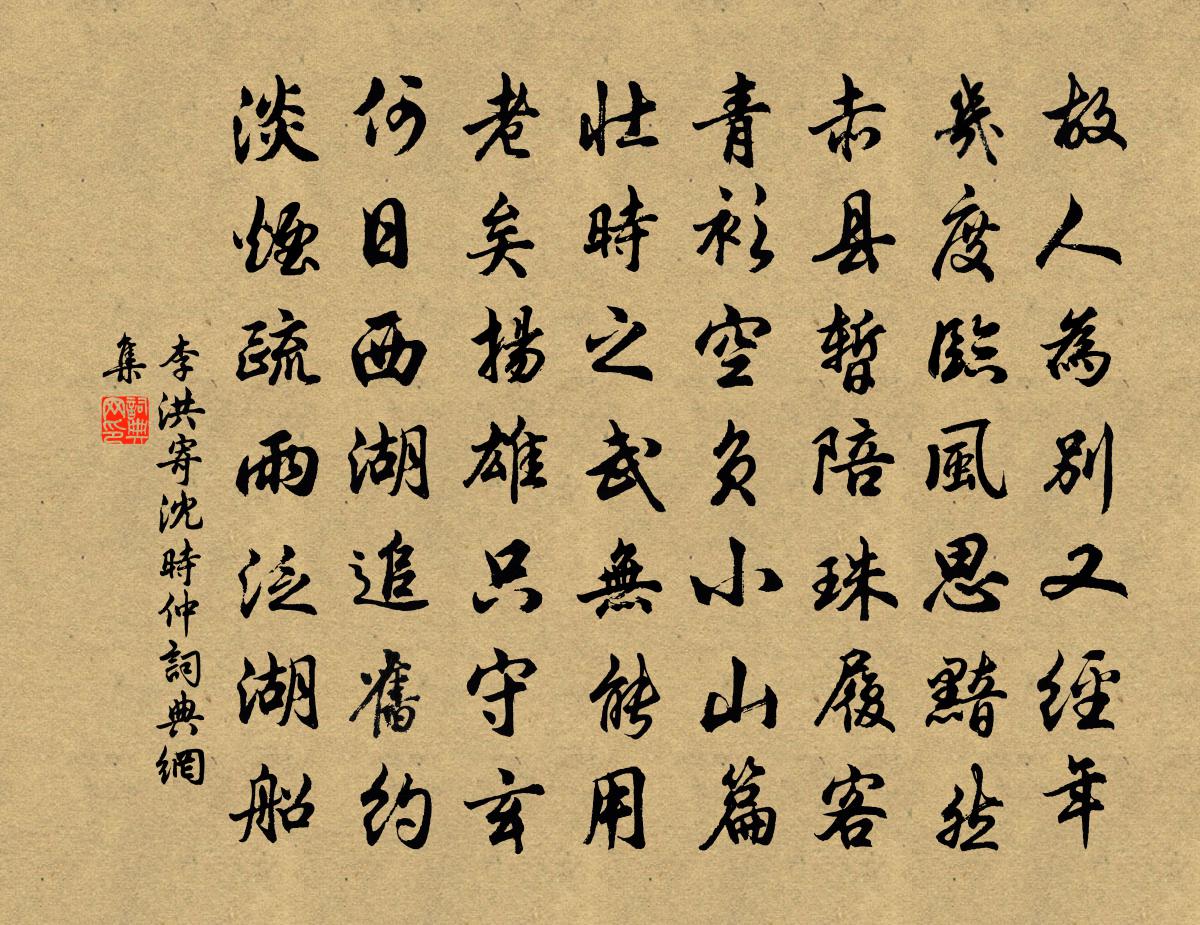 故人為別又經年
幾度臨風思黯然
赤县暫陪珠履客
青衫空負小山篇
壮時之武無能用
老矣揚雄只守玄
何日西湖追舊約
淡煙疏雨泛湖船
李洪寄沈時仲詞典網
集
詞典
网印